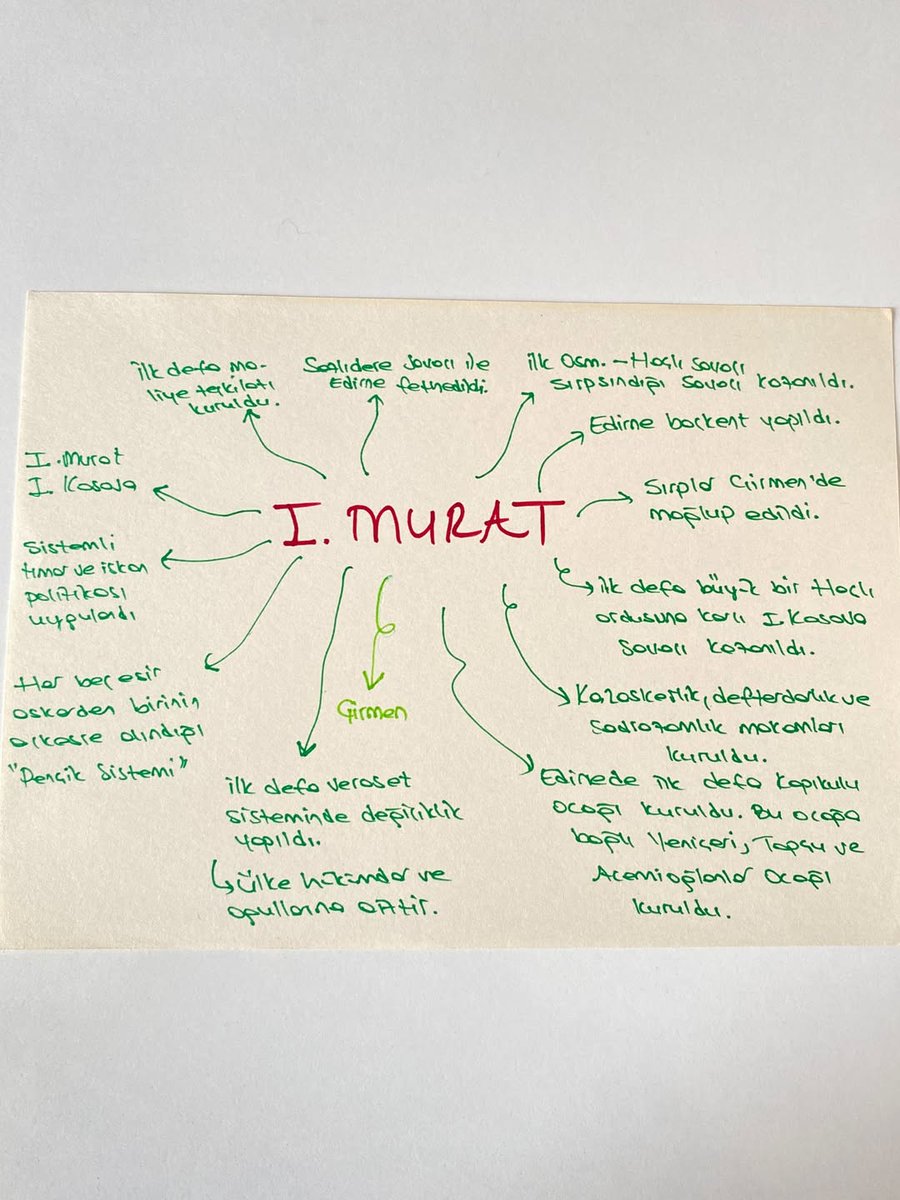 İlk defa ma-
liye teşkilatı
kuruldu.
Sazlıdere Savaşı ile
Edirne fethedildi.
İlk Osm. – Haçlı Savaşı
Sırpsındığı Savaşı kazanıldı.
Edirne başkent yapıldı.
I. Murat
I. Kosova
I. MURAT
Sırplar Çirmen'de
mağlup edildi.
Sistemli
tımar ve iskan
politikası
uygulandı
İlk defa büyük bir Haçlı
ordusuna karşı I. Kosova
Savaşı kazanıldı.
Her beş esir
askerden birinin
askere alındığı
"Pençik Sistemi"
Çirmen
Kazaskerlik, defterdarlık ve
Sadrazamlık makamları
kuruldu.
İlk defa veraset
sisteminde değişiklik
yapıldı.
Ülke hükümdar ve
oğullarına aittir.
Edirnede ilk defa Kapıkulu
Ocağı kuruldu. Bu ocağa
bağlı Yeniçeri, Topçu ve
Acemioğlanlar Ocağı
kuruldu.